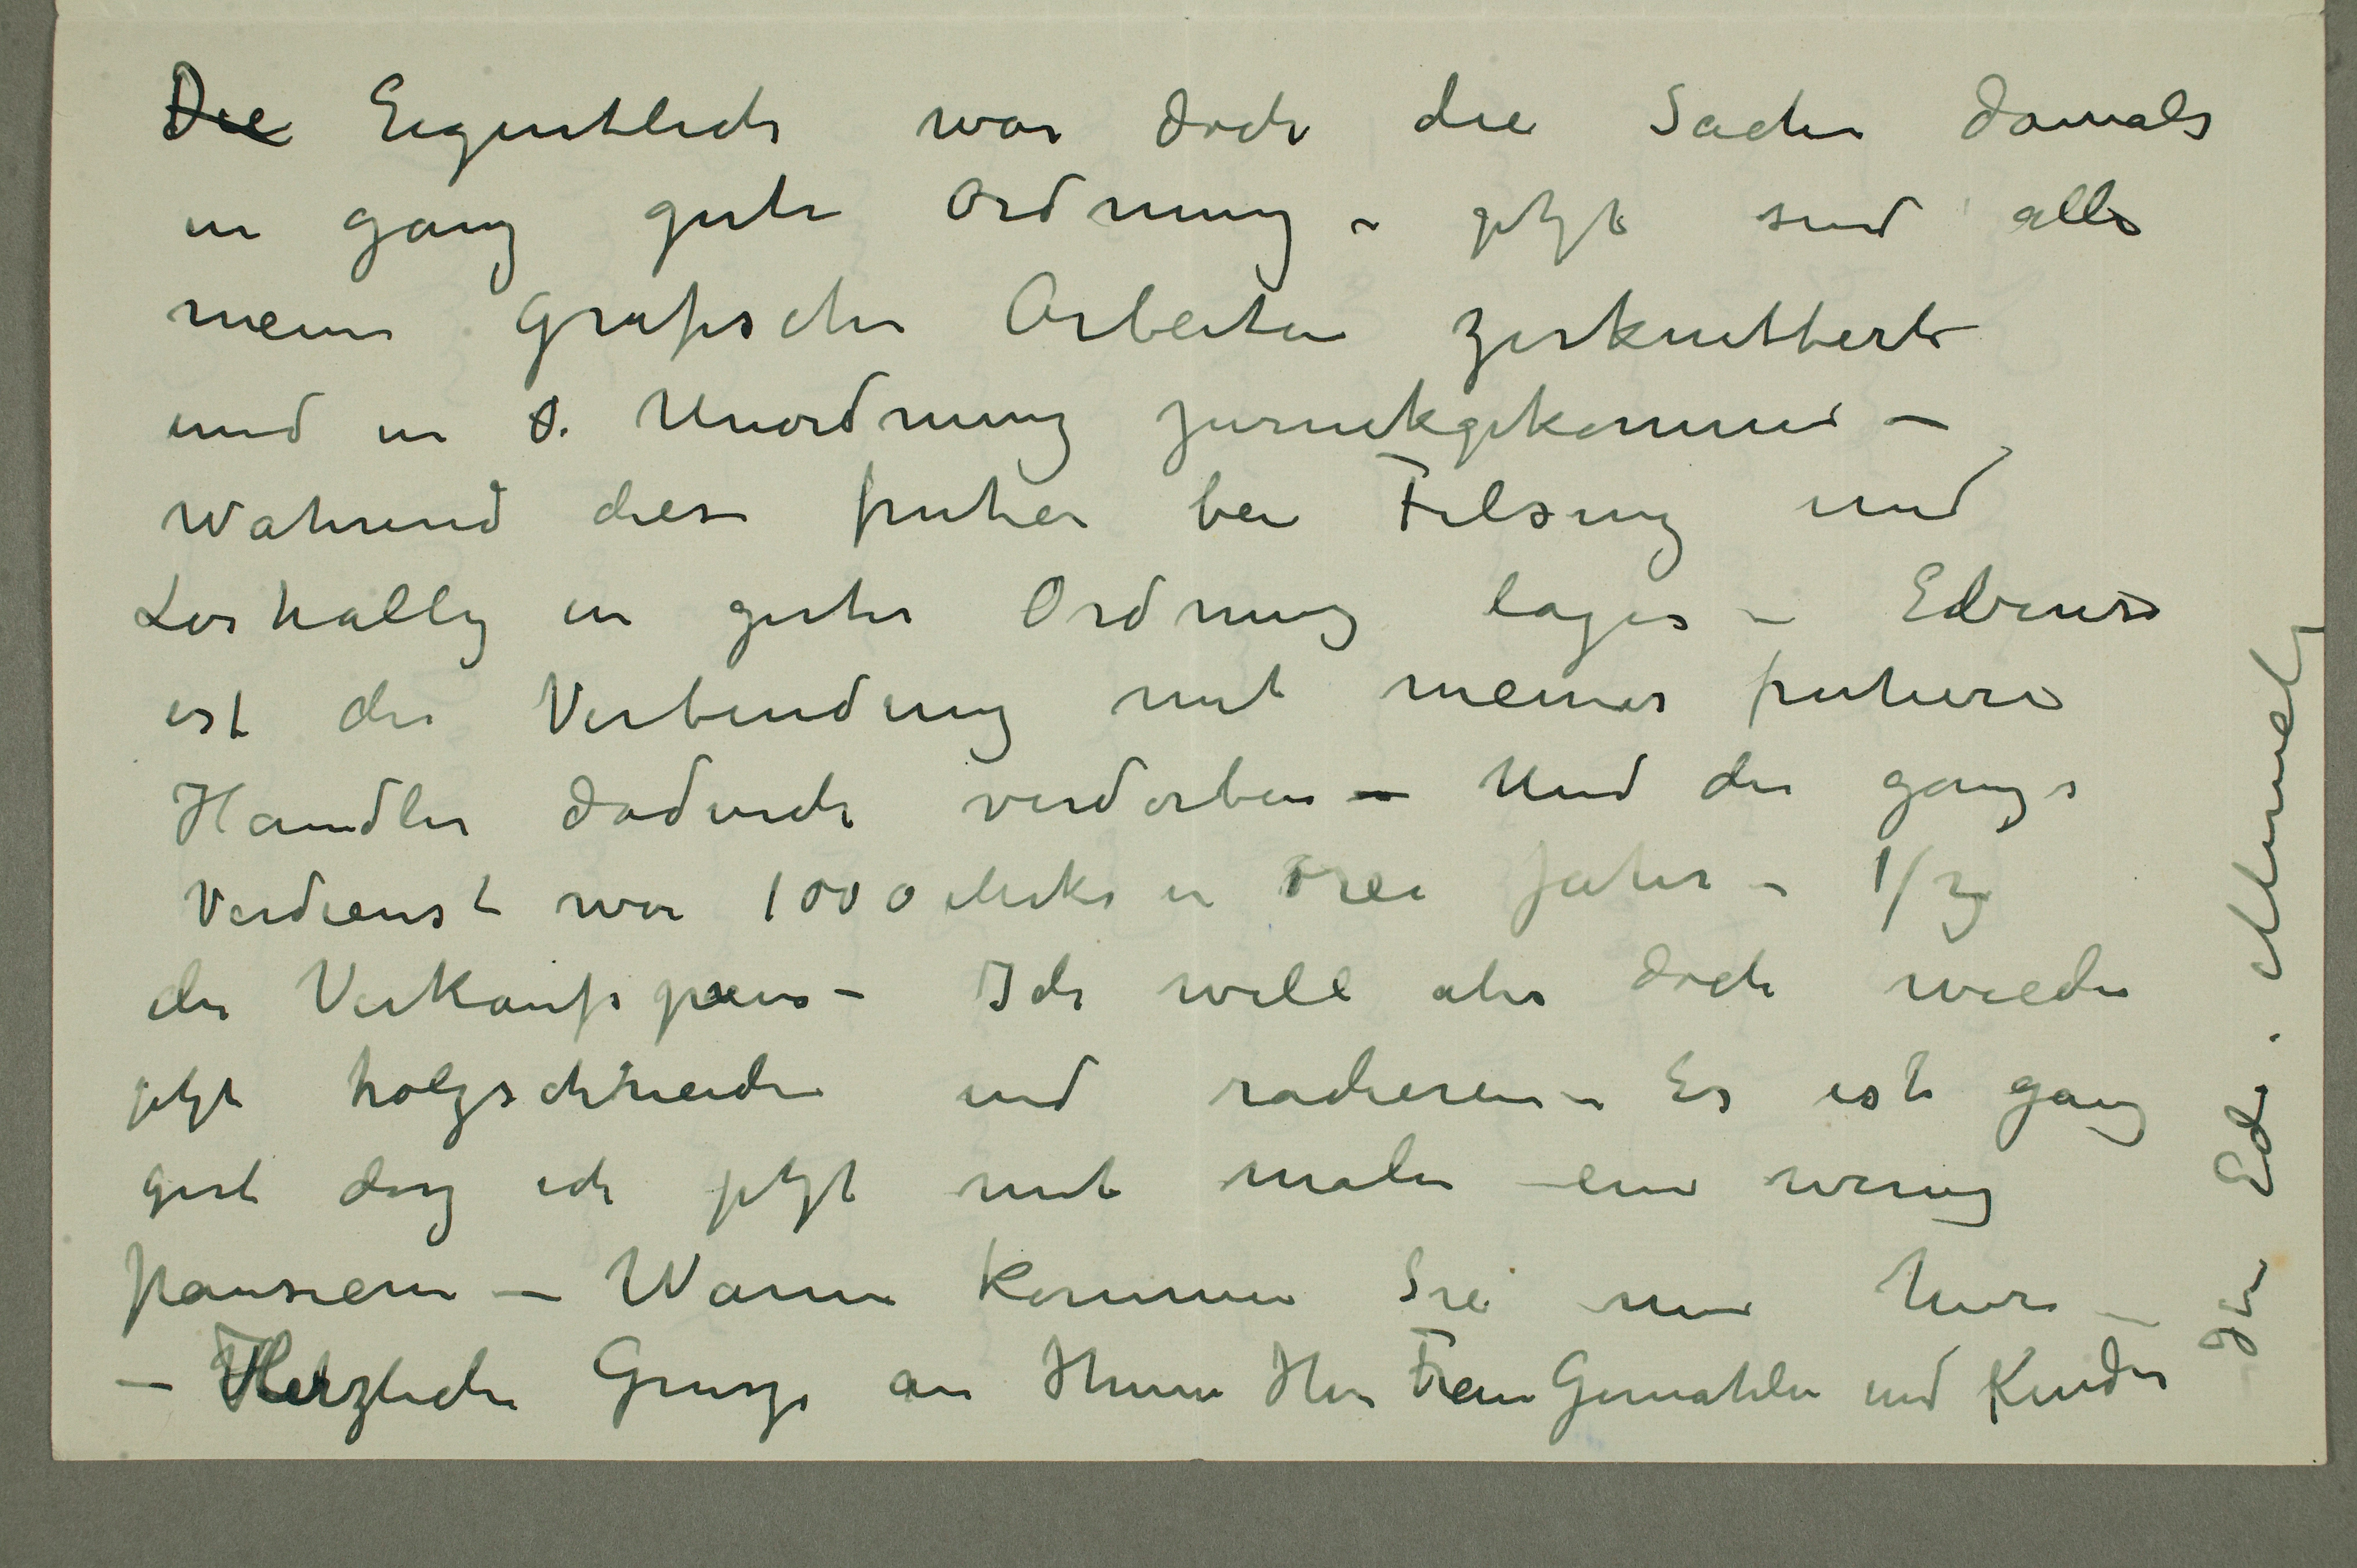 Die Eigentlich war doch die Sache damals
in ganz guter Ordnung – jetzt sind alle
meine Grafische Arbeiten zerknittert
und in O. Unordnung zurückgekommen –
während diese früher bei Felsing und
in guter Ordnung lagen –
ist die Verbindung mit meiner früheren
Händler dadurch verdorben – Und der ganze
Verdienst war 1000 Mark in drei Jahre – 1/3
der Verkaufspreis – Ich will aber doch wieder
jetzt holzschneiden und radieren – Es ist ganz
gut dasz ich jetzt mit malen ein wenig
pausiere – Wann kommen Sie nun hier –
– Herzliche Grüsze an Ihnen Ihre Frau Gemahlin und Kinder
Ihr Edv. Munch